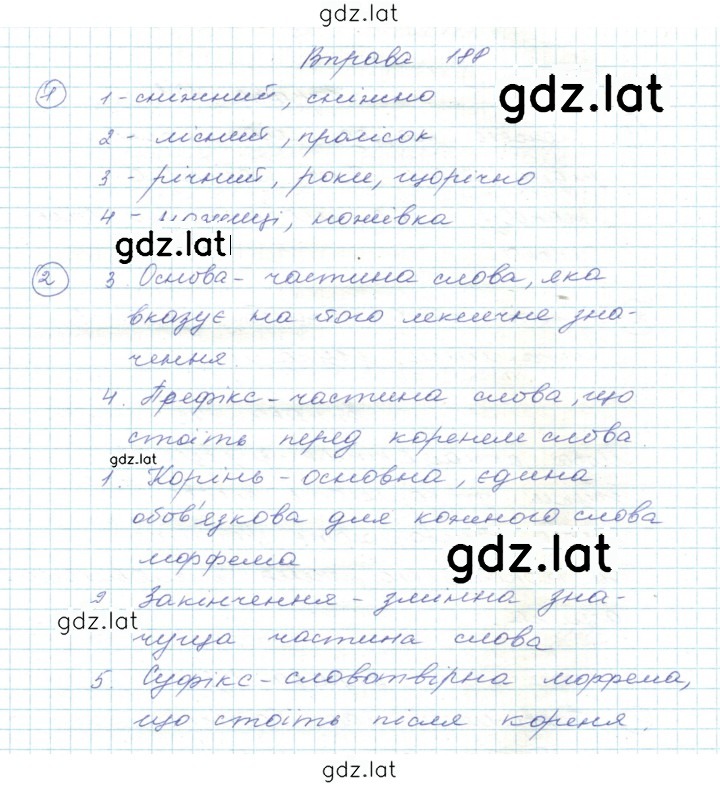 gdz.lat
Вправа 188
1 1 - сніжний, сніжно
gdz.lat
2 - лісний, пролісок
3 - річний, роки, щорічно
4 - ножиці, ножівка
gdz.lat
2 3 Основа - частина слова, яка
вказує на його лексичне зна-
чення.
4. Префікс - частина слова, що
стоїть перед коренем слова
gdz.lat
1. Корінь - основна, єдина
обов'язкова для кожного слова
морфема
gdz.lat
2 Закінчення - змінна зна-
gdz.lat
чуща частина слова
5. Суфікс - словотвірна морфема,
що стоїть після кореня.
gdz.lat